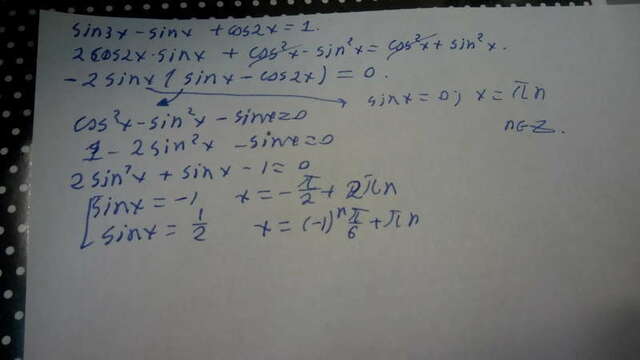 sin3x - sinx + cos2x = 1.
2cos2x·sinx + cos²x - sin²x = cos²x + sin²x.
-2sinx(sinx - cos2x) = 0.
sinx = 0; x = πn
n∈Z.
cos²x - sin²x - sinx = 0
1 - 2sin²x - sinx = 0
2sin²x + sinx - 1 = 0
sinx = -1 x = -π/2 + 2πn
sinx = 1/2 x = (-1)ⁿ π/6 + πn